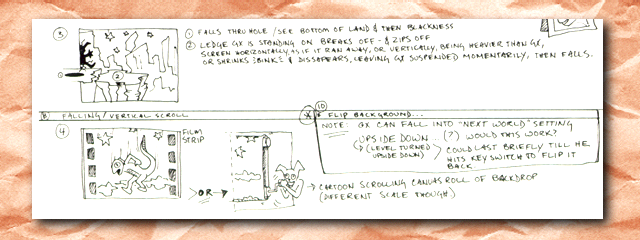 3
① FALLS THRU HOLE / SEE BOTTOM OF LAND & THEN BLACKNESS
② LEDGE GX IS STANDING ON BREAKS OFF - & ZIPS OFF
SCREEN HORIZONTALLY, AS IF IT RAN AWAY, OR VERTICALLY, BEING HEAVIER THAN GX,
OR SHRINKS & DISAPPEARS, LEAVING GX SUSPENDED MOMENTARILY, THEN FALLS.
①
②
B FALLING / VERTICAL SCROLL
10
* FLIP BACKGROUND...
NOTE: GX CAN FALL INTO "NEXT WORLD" SETTING
UPSIDE DOWN... (?) WOULD THIS WORK?
(LEVEL TURNED UPSIDE DOWN)
COULD LAST BRIEFLY TILL HE
HITS KEY SWITCH TO FLIP IT
BACK.
4
FILM
STRIP
OR
CARTOON SCROLLING CANVAS ROLL OF BACKDROP
(DIFFERENT SCALE THOUGH)